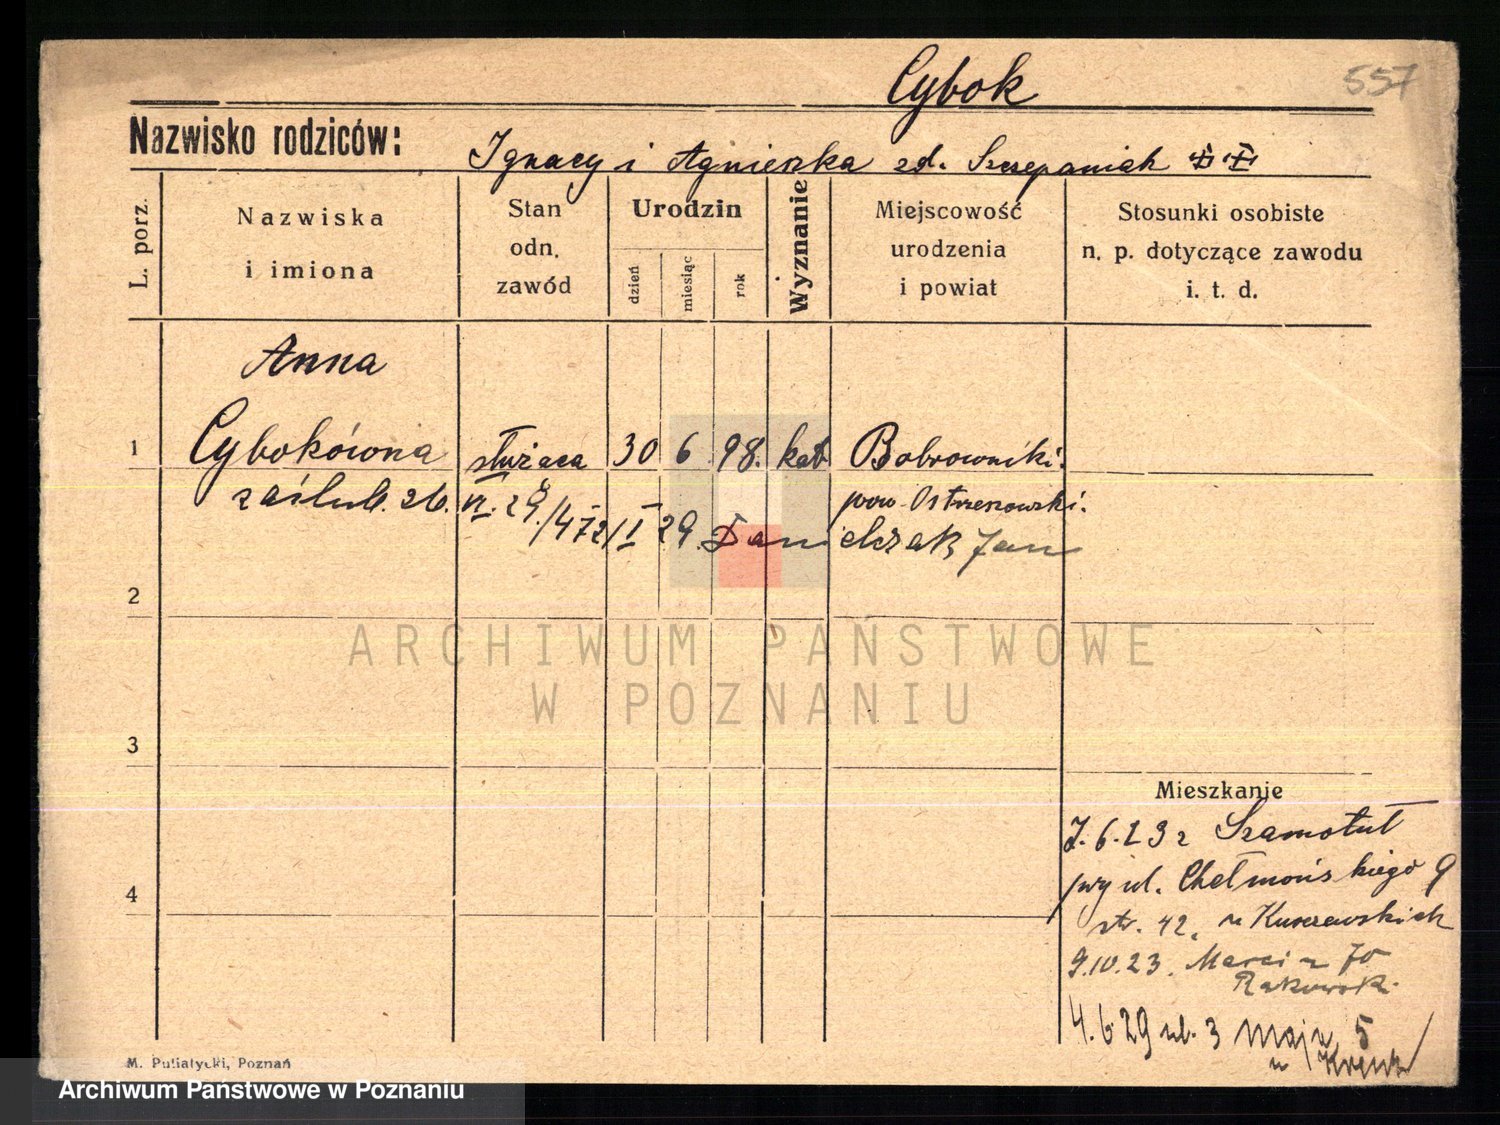 Cybok
557
Nazwisko rodziców:
Ignacy i Agnieszka zd. Szczepaniak
L. porz.
Nazwiska
i imiona
Stan
odn.
zawód
Urodzin
dzień
miesiąc
rok
Wyznanie
Miejscowość
urodzenia
i powiat
Stosunki osobiste
n. p. dotyczące zawodu
i. t. d.
Anna
1 Cybokówna służąca 30 6 98. kat Bobrowniki.
zaślub. 26. 29. pow. Ostrzeszowski.
/472/I 29. Danielczak Jan
2
3
4
Mieszkanie
7.6.23 z Szamotuł
przy ul. Chełmońskiego 9
str. 42. u Kuszewskich
9.10.23. Marcin 70
Rakowsk.
4.6 29 ul. 3 Maja 5
u
M. Putiatycki, Poznań
ARCHIWUM PAŃSTWOWE
W POZNANIU
Archiwum Państwowe w Poznaniu